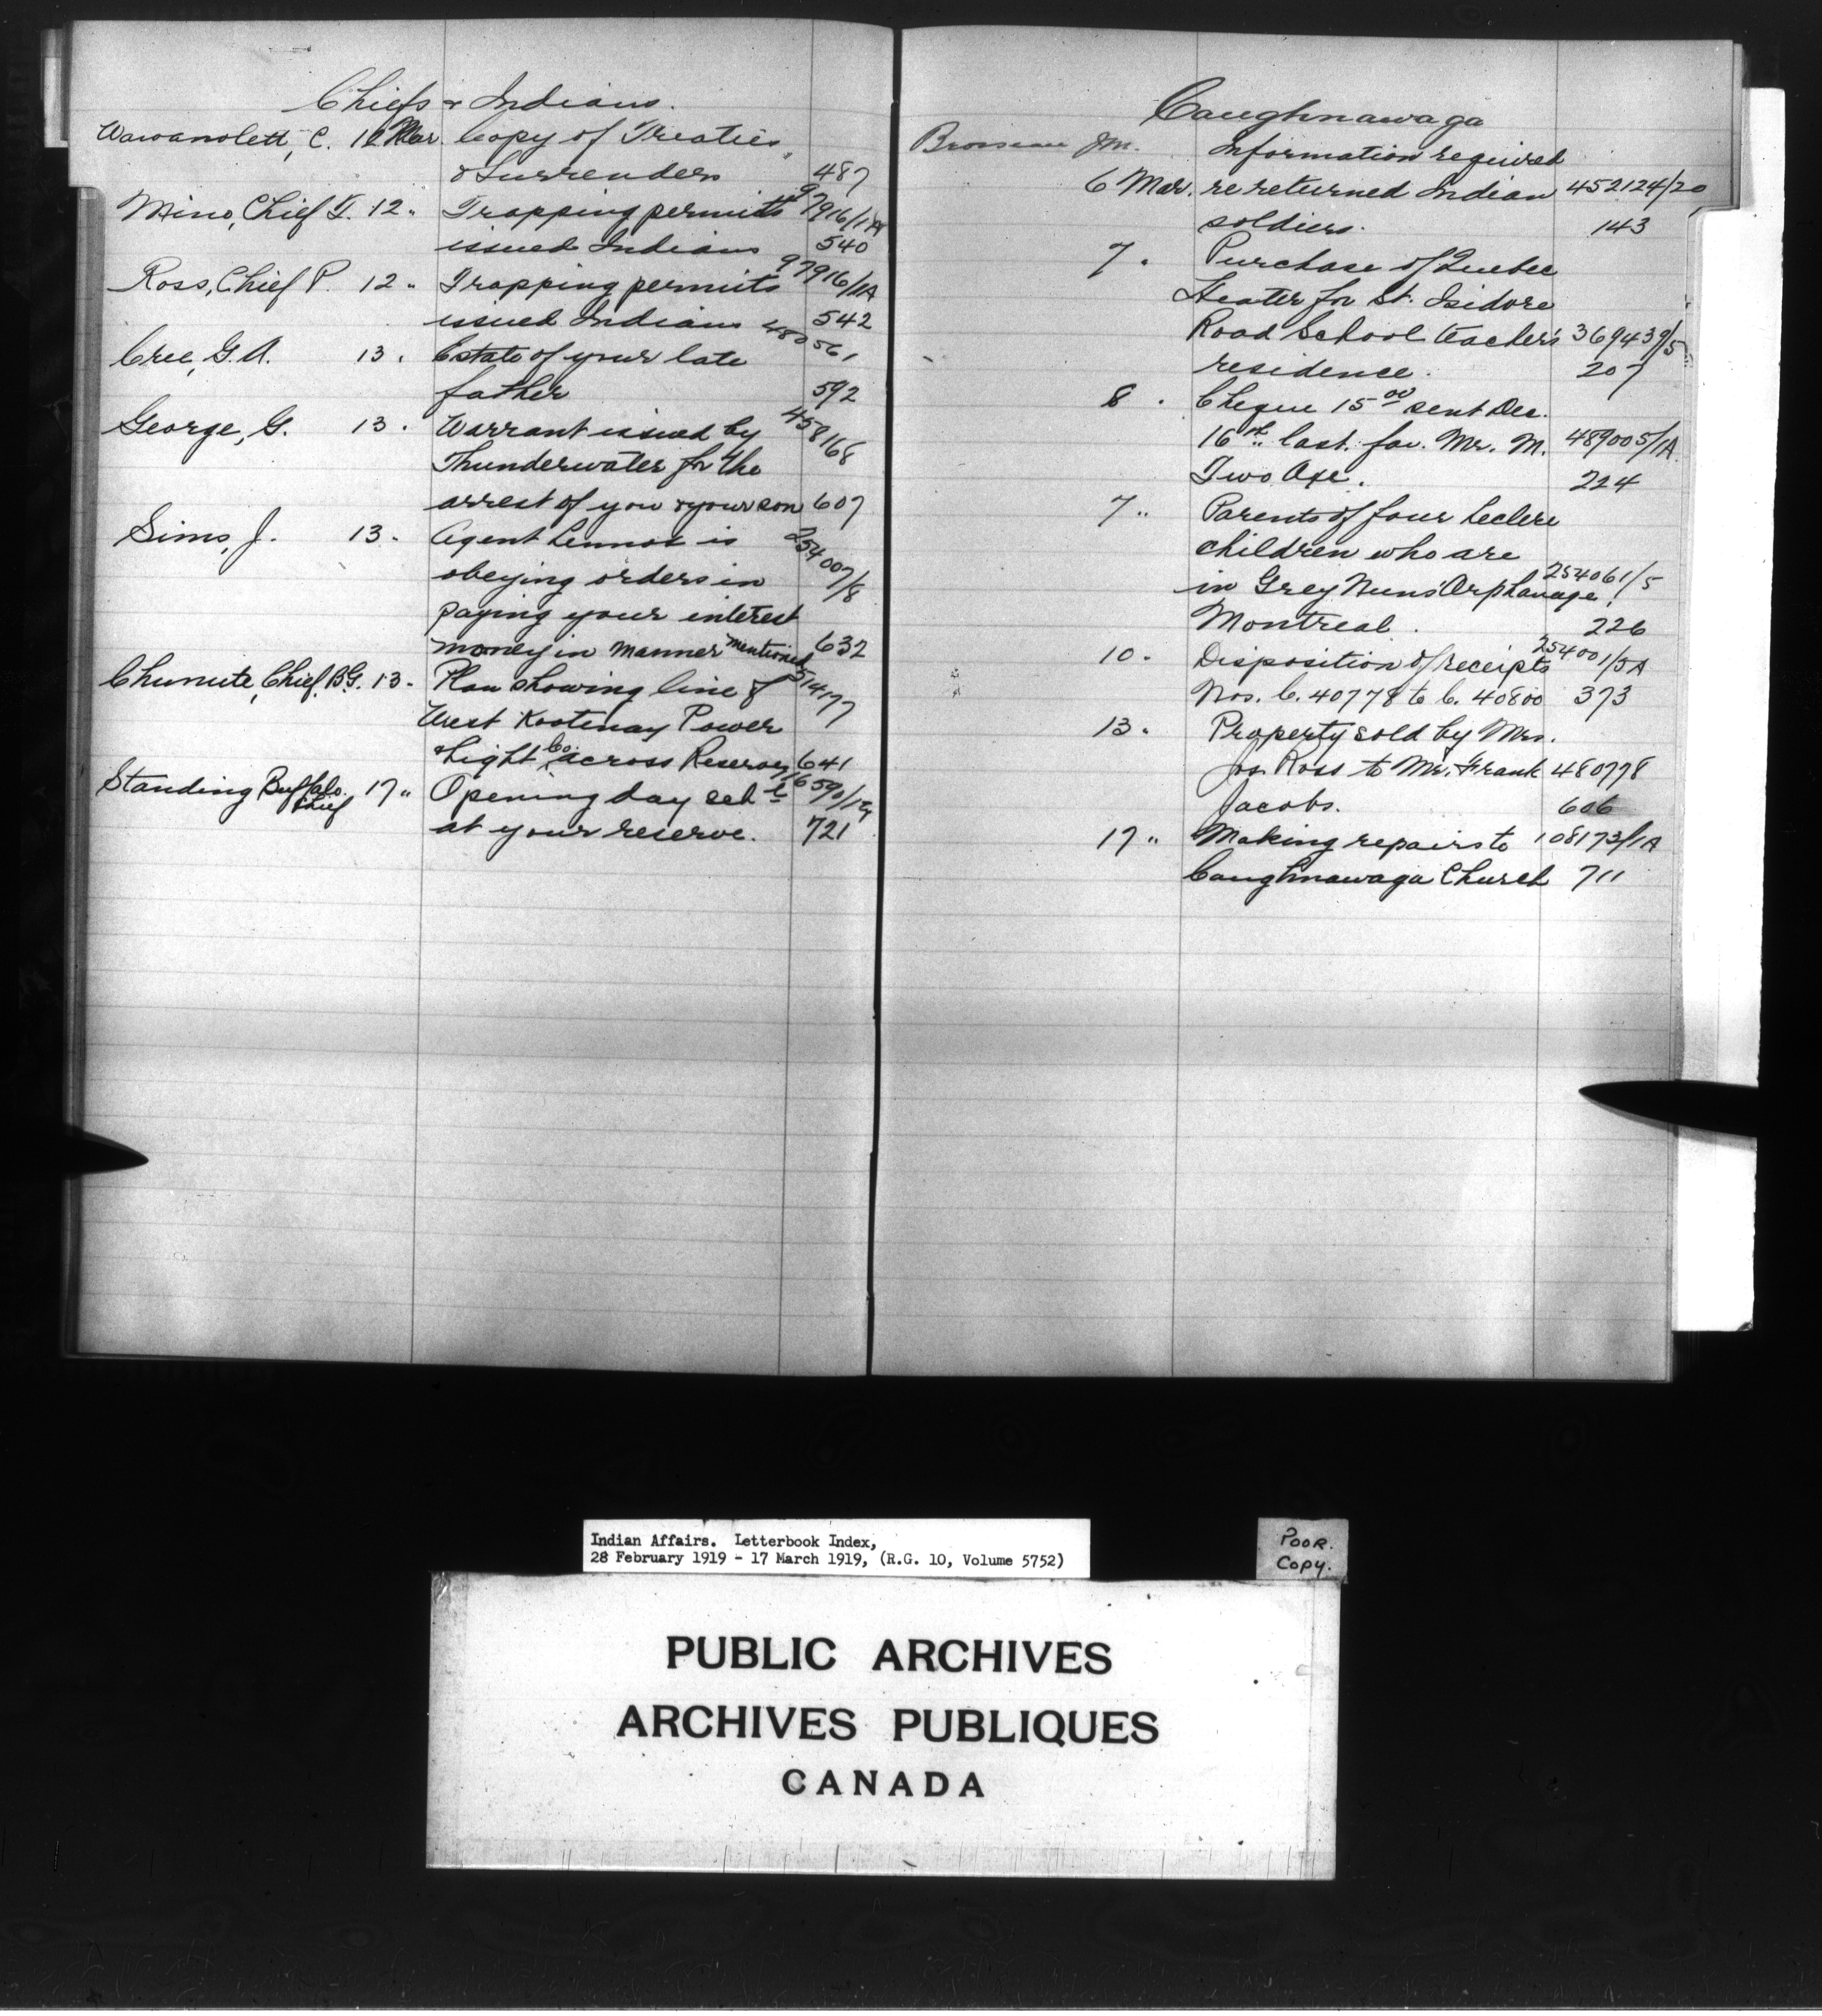 Chiefs & Indians.
Wawanolett, C. 12 Mar. Copy of Treaties
& Surrenders 487
Mino, Chief T. 12 " Trapping permits 97916/1A
issued Indians 540
Ross, Chief P. 12 " Trapping permits 97916/1A
issued Indians 542
Cree, G. A. 13 . Estate of your late 480561
father 592
George, G. 13 . Warrant issued by 458168
Thunderwater for the
arrest of you & your son 607
Sims, J. 13 . Agent Lennox is 254007/8
obeying orders in
paying your interest
money in manner mentioned 632
Chunute, Chief B.G. 13 . Plan showing line of 51417
West Kootenay Power
& Light Co. across Reserve 641
Standing Buffalo, Chief 17 " Opening day sch
at your reserve. 721
Caughnawaga
Brosseau J.M. Information required
6 Mar. re returned Indian 452124/20
soldiers. 143
7 . Purchase of Quebec
Heater for St. Isidore
Road School teacher's 369439/5
residence. 207
8 . Cheque 15 00 sent Dec.
16th last. fav. Mr. M. 489005/1A
Two Axe. 224
7 " Parents of four Leclere
children who are
in Grey Nuns' Orphanage, 254061/5
Montreal. 226
10 . Disposition of receipts 254001/5A
Nos. C. 40778 to C. 40800 373
13 . Property sold by Mrs.
Jos Ross to Mr. Frank 480778
Jacobs. 606
17 " Making repairs to 108173/1A
Caughnawaga Church 711
Indian Affairs. Letterbook Index,
28 February 1919 - 17 March 1919, (R.G. 10, Volume 5752)
POOR.
COPY.
PUBLIC ARCHIVES
ARCHIVES PUBLIQUES
CANADA